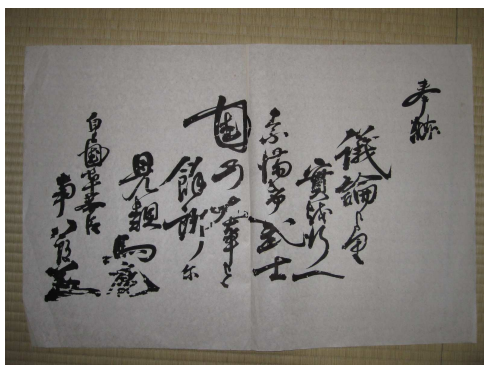 議論より
實を行へ
奈満希武士
國の大事を
餘所尓
見類馬鹿
皇國草莽臣
南八郎